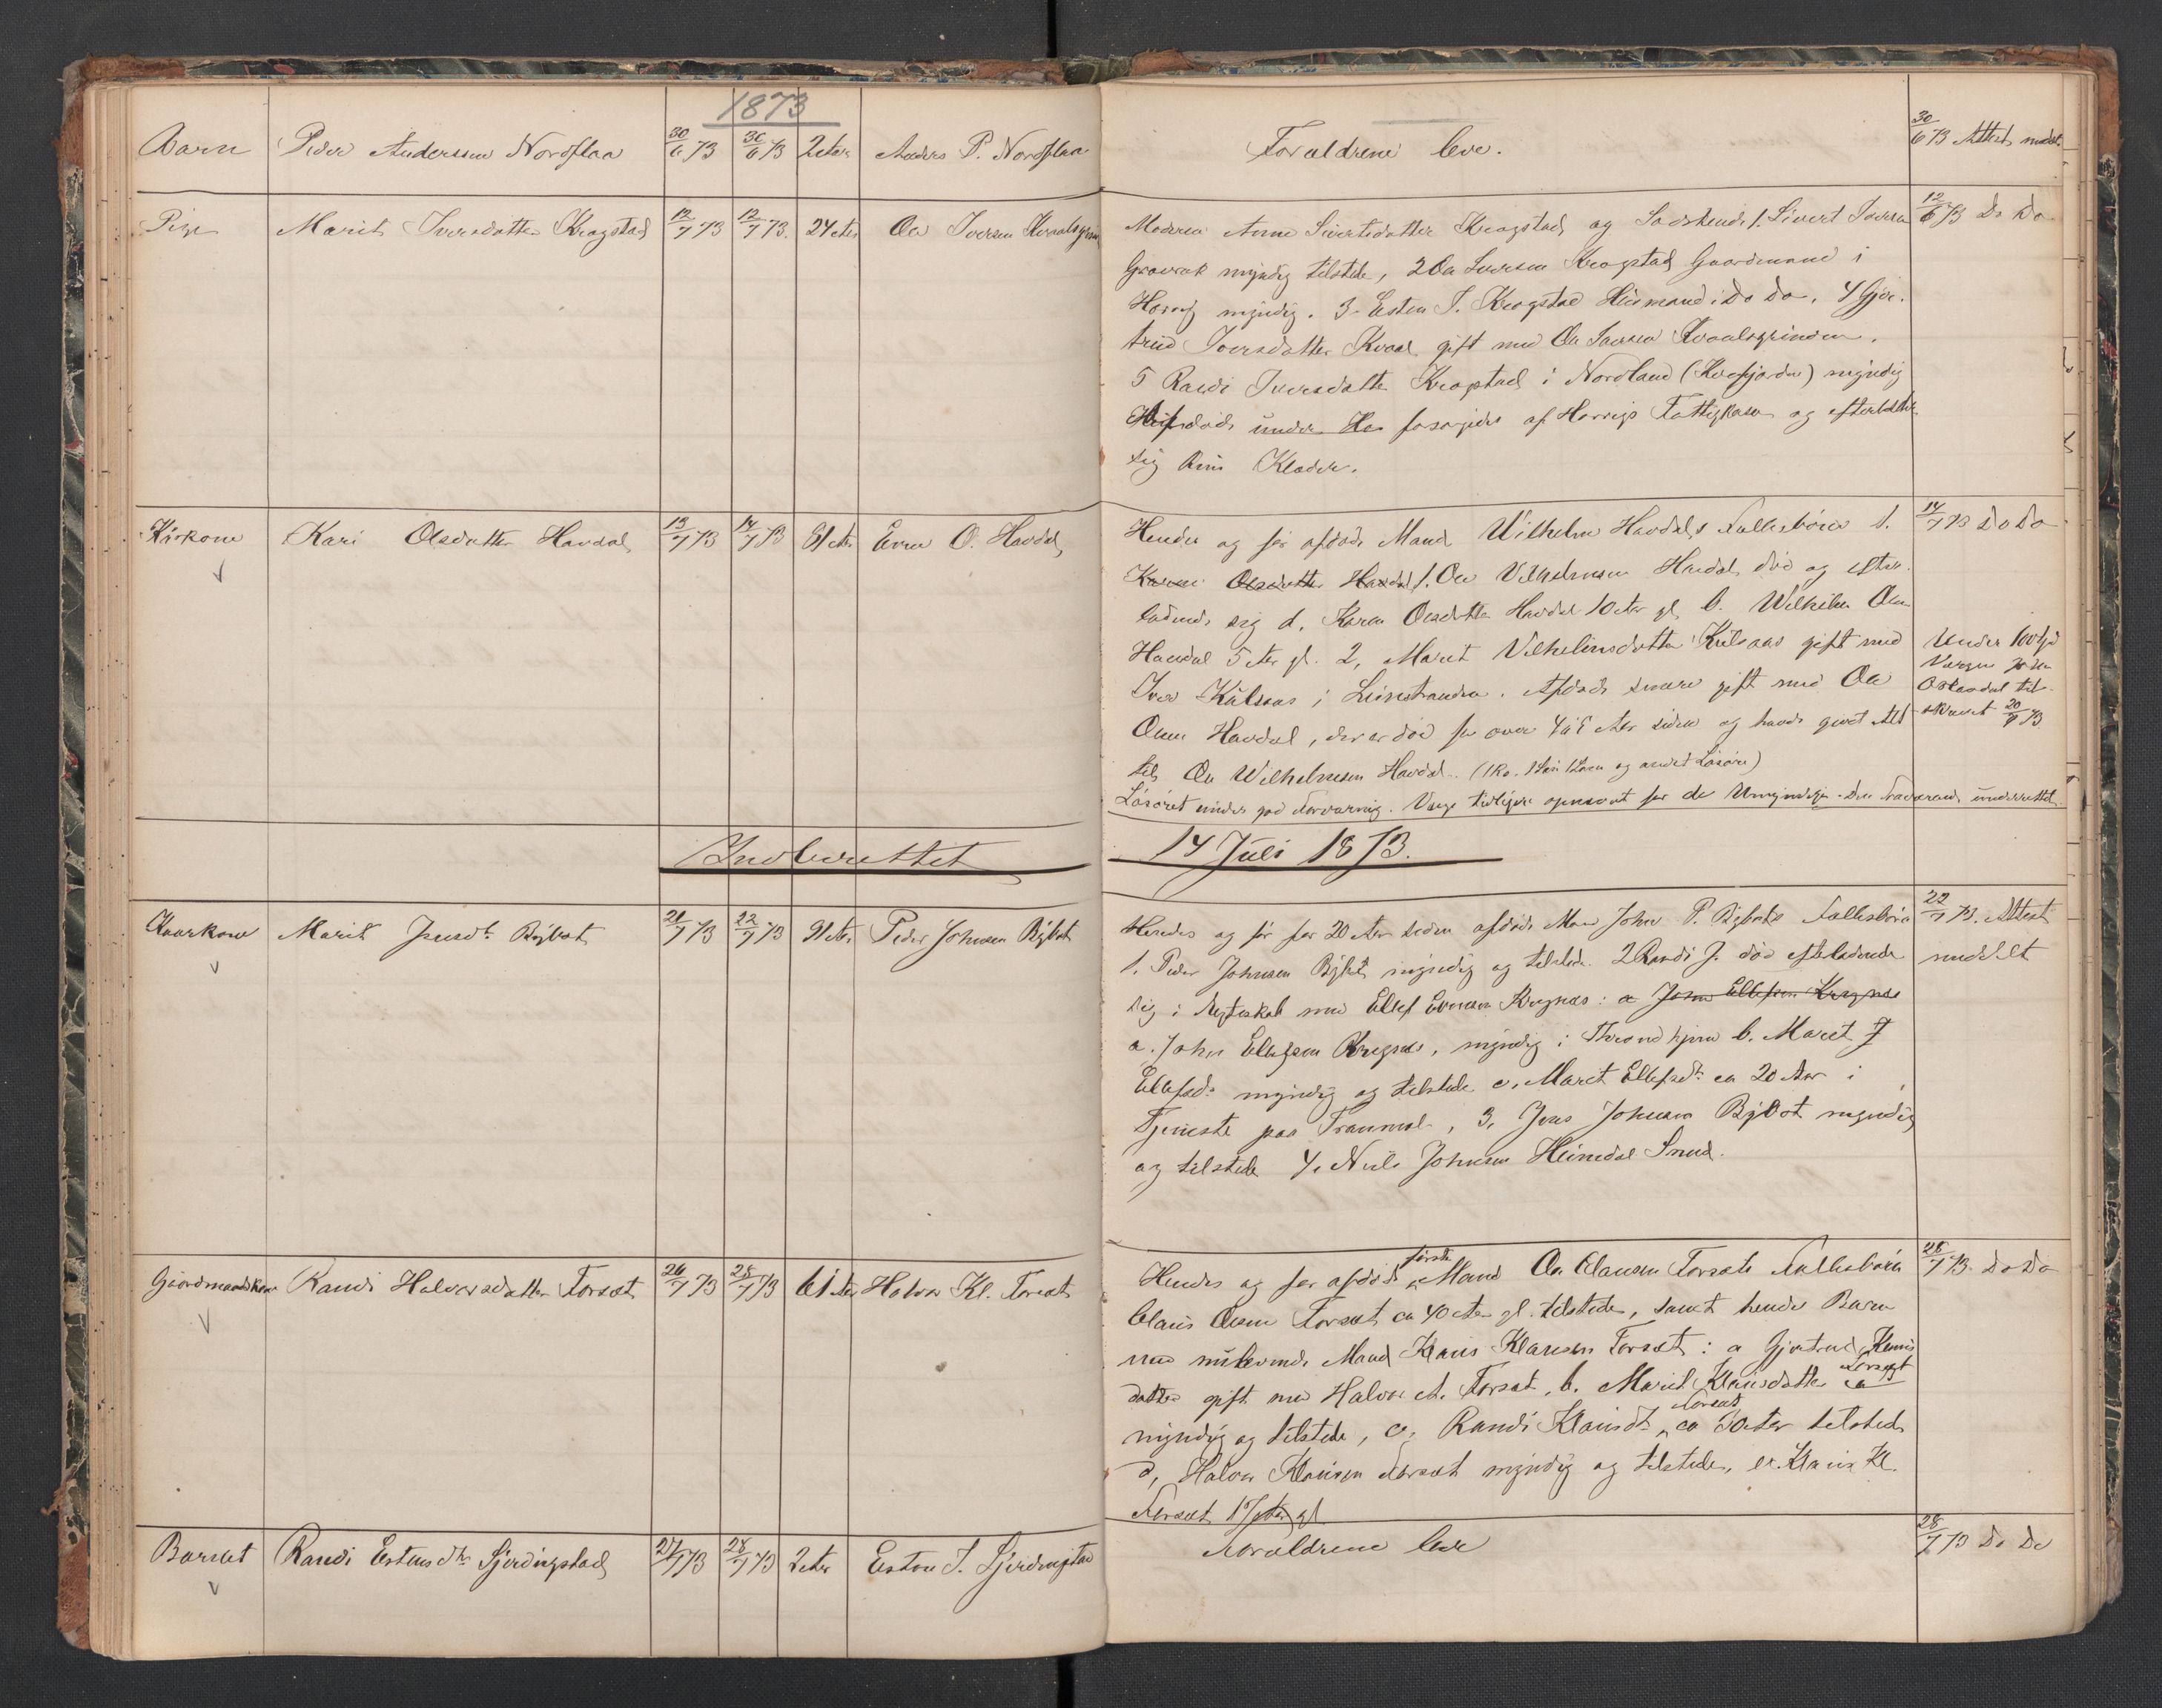 1873
Barn Peder Anderssen Nordflaa 30/6 73 30/6 73 2 Aar Anders P. Nordflaa
Forældrene leve.
30/6 73 Attest medd.
Pige Marit Iversdatter Krogstad 12/7 73 12/7 73. 24 Aar Ole Iversen Kvaalsgrin
Moderen Anne Sivertsdatter Krogstad og Sødskende 1. Sivert Iversen
Gravrok myndig tilstede, 2 Ole Iversen Krogstad Gaardmand i
Horrig myndig. 3 Esten I. Krogstad Huusmand i Do Do. 4 Gjer-
trud Iversdatter Kvaal gift med Ole Iversen Kvaalsgrinden.
5 Randi Iversdatter Krogstad i Nordland myndig
Afdøde under Has forsørgedes af Horrigs Fattigkasse og efterlader
sig kun Klæder.
12/6 73 Do Do
Kårkone Kari Olsdatter Havdal 13/7 73 14/7 73 81 Aar Even O. Havdal
Hendes og før afdøde Mand Wilhelm Havdals Fællesbørn 1.
Karen Olsdatter Havdal 1. Ole Vilhelmsen Havdal død og efter-
ladende sig d. Karen Olsdatter Havdal 10 Aar gl, b. Wilhelm Olsen
Havdal 5 Aar gl. 2, Marit Vilhelmsdatter Kulsaas gift med
Iver Kulsaas i Leinstranden. Afdøde senere gift med Ole
Olsen Havdal, der er død for over 4 a 5 Aar siden og havde givet Alt
til Ole Wilhelmsen Havdal. (1 Ko, og andet Løsøre)
Løsøret under god Forvaring. Værge tidligere opnævnt for de Umyndige. underrettet.
14/7 73 Do Do
Under
Værgen
O Havdal til-
skrevet 20/7 73.
Indberettet 14 Juli 1873.
Kaarkone Marit Jensdt. Bybot 21/7 73 22/7 73 91 Aar Peder Johnsen Bybot
Hendes og før for 20 Aar siden afdøde Man John P. Bybots Fællesbørn
1. Peder Johnsen Bybot myndig og tilstede. 2 Randi J. død efterladende
sig i Ægteskab med Ellef Krognæs: a John Ellefsen Krognæs
a. John Ellefsen Krognæs, myndig i Throndhjem b. Marit J
Ellefsd. myndig og tilstede c, Marit Ellefsdt. ca 20 Aar i
Tjeneste paa , 3, Jens Johnsen Bybot myndig
og tilstede 4, Nils Johnsen Heimdal Smed.
22/7 73. Attest
meddelt
Gaardmandskone Randi Halvorsdatter Forsæt 26/7 73 28/7 73 61 Aar Halvor Kl. Forsæt
Hendes og før afdøde første Mand Ole Clausen Forsæts Fællesbørn
Claus Olsen Forsæt ca 40 Aar gl. tilstede, samt hendes Børn
med nulevende Mand Klaus Klausen Forsæt: a Gjertrud Klaus
datter gift med Halvor A. Forsæt, b. Marit Klausdatter Forsæt
myndig og tilstede, c, Randi Klausdt. Forsæt ca 30 Aar tilstede
d, Halvor Klausen Forsæt myndig og tilstede, e. Klaus Kl.
Forsæt 17 Aar gl
28/7 73. Do Do
Barnet Randi Estensdtr Gjerdingstad 27/7 73 28/7 73 2 Aar Esten I. Gjerdingstad
Forældrene leve
28/7 73 Do Do